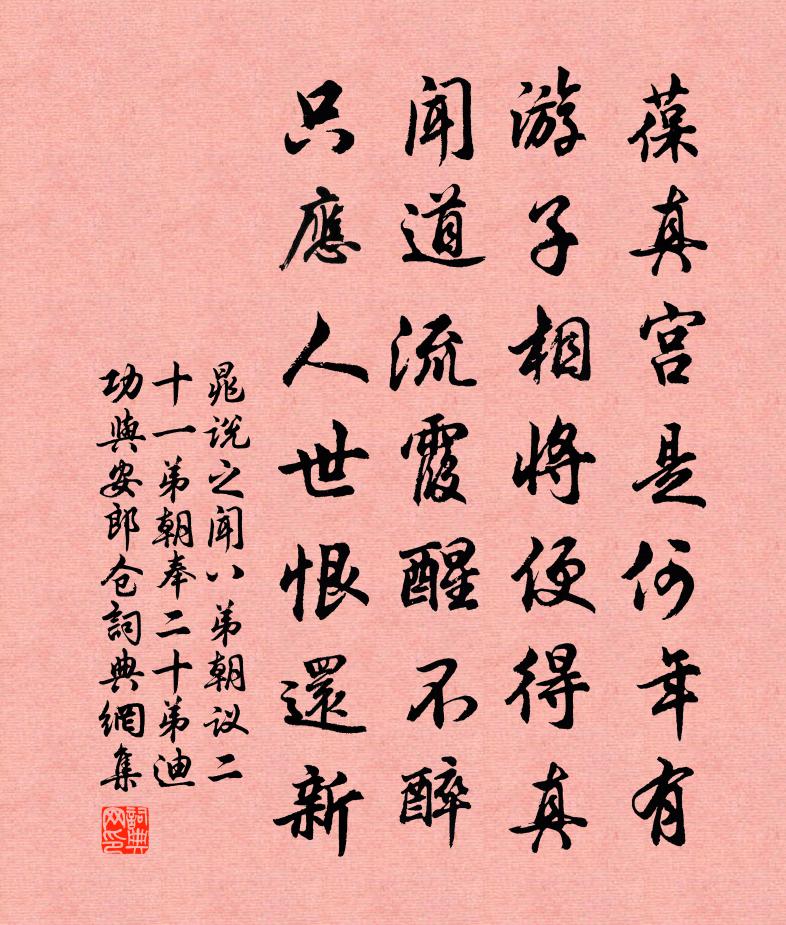 葆真宫是何年有
游子相将便得真
闻道流霞醒不醉
只應人世恨還新
晁说之闻八弟朝议二
十一弟朝奉二十弟迪
功與安郎仓詞典網集
詞典
网印